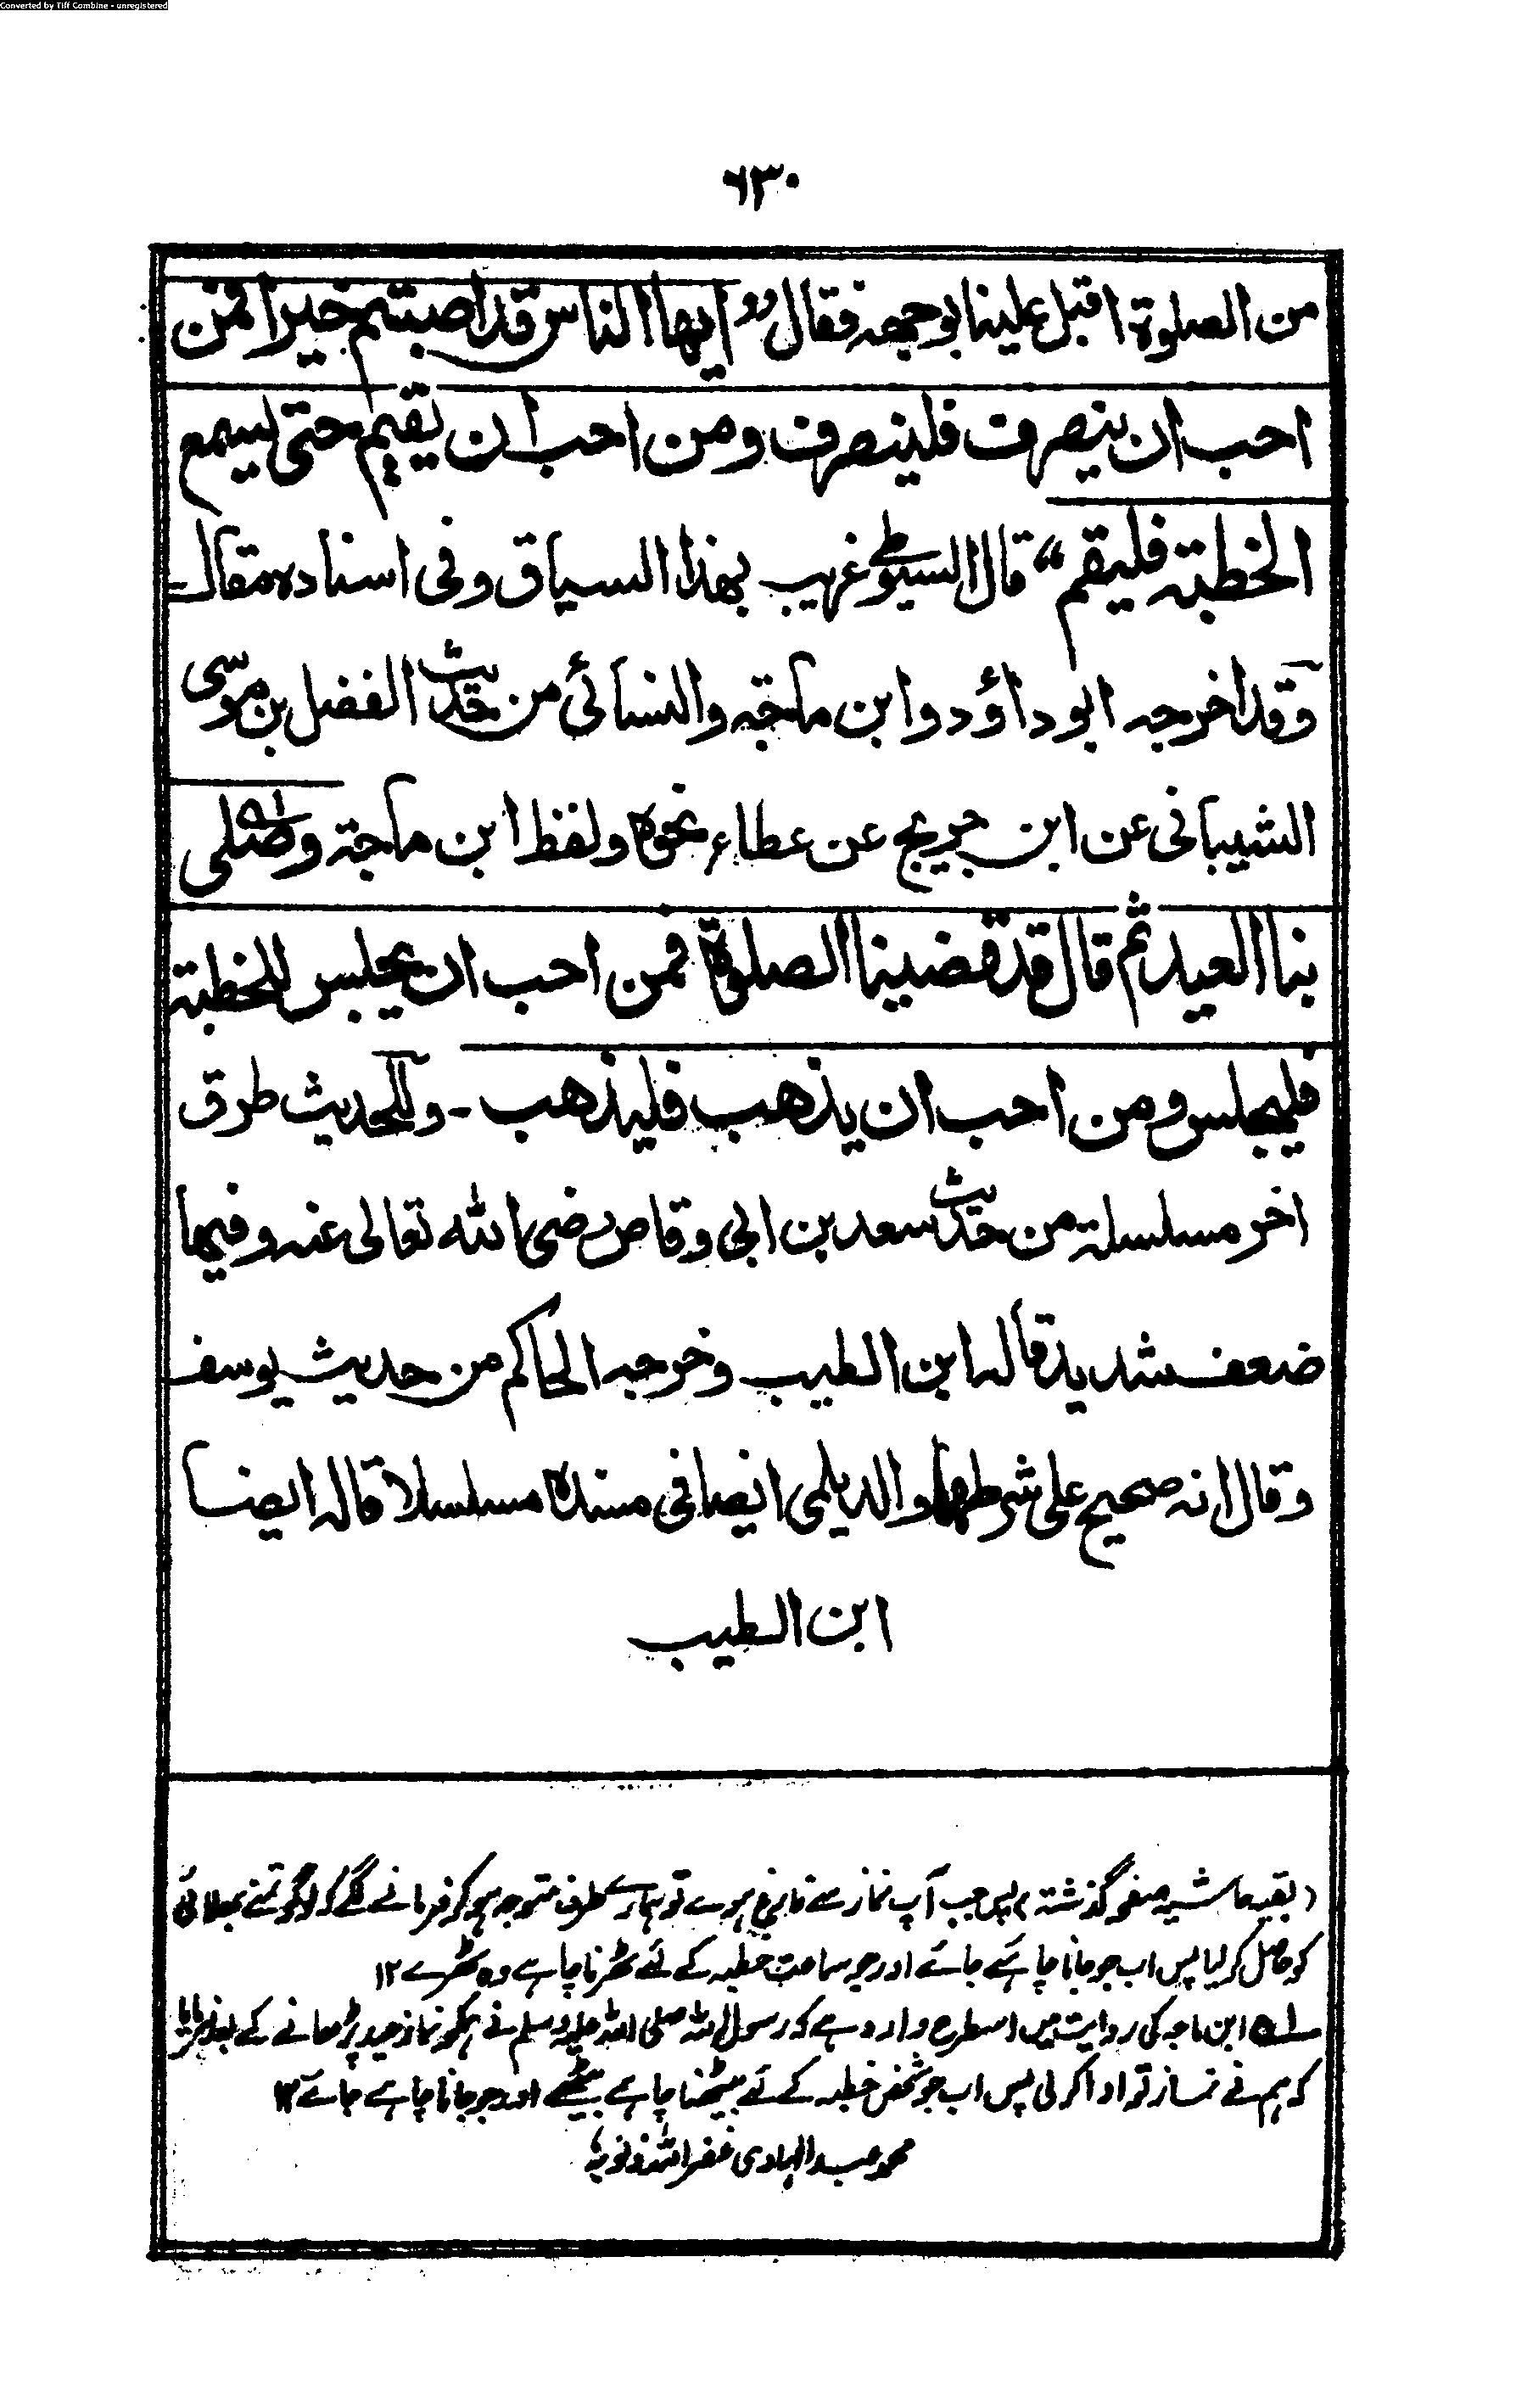 Converted by Tiff Combine - unregistered
۶۳۰
من الصلوة اقبل علينا بوجهه فقال " ايها الناس قد اصبتم خيرا فمن
احب ان ينصرف فلينصرف ومن احب ان يقيم حتى يسمع
الخطبة فليقم " قال السيوطي غريب بهذا السياق وفى اسناده مقال
وقد اخرجه ابو داؤد وابن ماجة والنسائى من حديث الفضل بن موسى
الشيبانى عن ابن جريج عن عطاء نحوه ولفظ ابن ماجة وصلى
بنا العيد ثم قال قد قضينا الصلوة فمن احب ان يجلس للخطبة
فليجلس ومن احب ان يذهب فليذهب - وللحديث طرق
اخر مسلسلة من حديث سعد بن ابى وقاص رضى الله تعالى عنه وفيها
ضعف شديد قاله ابن الطيب وخرجه الحاكم من حديث يوسف
وقال انه صحيح على شرطهما والديلمى ايضا فى مسنده مسلسلا قاله ايضا
ابن الطيب
(بقیہ حاشیہ صفحہ گذشتہ) پس جب آپ نماز سے فارغ ہوے تو ہمارے طرف متوجہ ہو کر فرمانے لگے کہ لوگو تمنے بھلائی
کو حاصل کر لیا پس اب جو جانا چاہے جائے اور جو سماعت خطبہ کے لئے ٹھرنا چاہے وہ ٹھرے ۱۲
۱ه ابن ماجہ کی روایت میں اسطرح وارد ہے کہ رسول اللہ صلی اللہ علیہ وسلم نے ہمکو نماز عید پڑھانے کے بعد فرمایا
کہ ہم نے نماز تو ادا کر لی پس اب جو شخص خطبہ کے لئے بیٹھنا چاہے بیٹھے اور جو جانا چاہے جائے ۱۲
محمد عبد الہادی غفر اللہ ذنوبہ